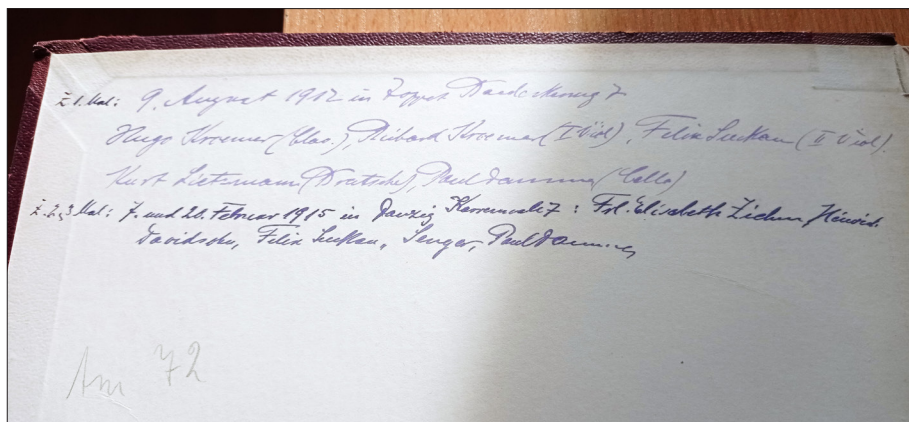 z. 1. Mal: 9. August 1912 in Zoppot
Hugo Kroemer (Clav.), Richard Kroemer (I Viol), Felix Luckau (II Viol).
Kurt Lietzmann (Bratsche), Paul Damme (Cello)
z. 2. 3. Mal: 7. und 20. Februar 1915 in Danzig 7: Frl. Elisabeth
Davidsohn, Felix Luckau, Senger, Paul Damme
Am 72